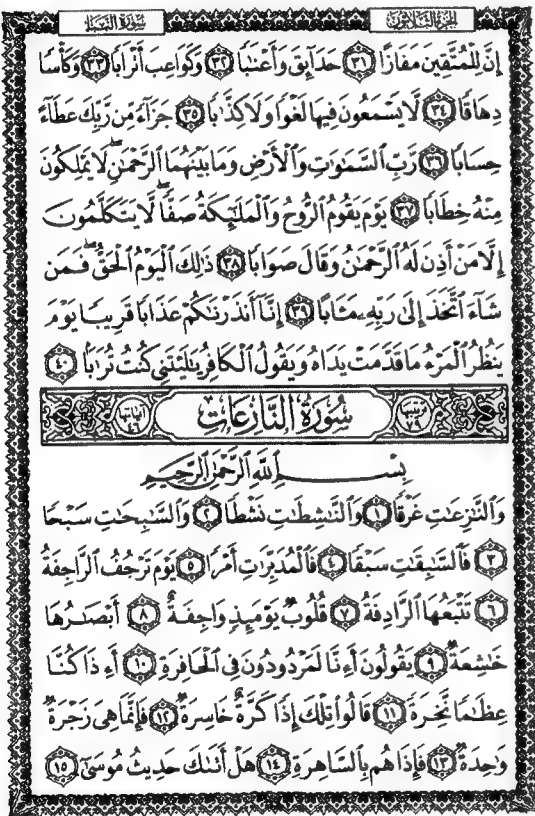 الجزء الثلاثون سورة النبإ
إِنَّ لِلْمُتَّقِينَ مَفَازًا ٣١ حَدَآئِقَ وَأَعْنَٰبًا ٣٢ وَكَوَاعِبَ أَتْرَابًا ٣٣ وَكَأْسًا
دِهَاقًا ٣٤ لَّا يَسْمَعُونَ فِيهَا لَغْوًا وَلَا كِذَّٰبًا ٣٥ جَزَآءً مِّن رَّبِّكَ عَطَآءً
حِسَابًا ٣٦ رَّبِّ ٱلسَّمَٰوَٰتِ وَٱلْأَرْضِ وَمَا بَيْنَهُمَا ٱلرَّحْمَٰنِ ۖ لَا يَمْلِكُونَ
مِنْهُ خِطَابًا ٣٧ يَوْمَ يَقُومُ ٱلرُّوحُ وَٱلْمَلَٰٓئِكَةُ صَفًّا ۖ لَّا يَتَكَلَّمُونَ
إِلَّا مَنْ أَذِنَ لَهُ ٱلرَّحْمَٰنُ وَقَالَ صَوَابًا ٣٨ ذَٰلِكَ ٱلْيَوْمُ ٱلْحَقُّ ۖ فَمَن
شَآءَ ٱتَّخَذَ إِلَىٰ رَبِّهِۦ مَـَٔابًا ٣٩ إِنَّآ أَنذَرْنَٰكُمْ عَذَابًا قَرِيبًا يَوْمَ
يَنظُرُ ٱلْمَرْءُ مَا قَدَّمَتْ يَدَاهُ وَيَقُولُ ٱلْكَافِرُ يَٰلَيْتَنِى كُنتُ تُرَٰبًا ٤٠
ترتيبها ٧٩ سُورَةُ النَّازِعَاتِ آياتها ٤٦
بِسْمِ ٱللَّهِ ٱلرَّحْمَٰنِ ٱلرَّحِيمِ
وَٱلنَّٰزِعَٰتِ غَرْقًا ١ وَٱلنَّٰشِطَٰتِ نَشْطًا ٢ وَٱلسَّٰبِحَٰتِ سَبْحًا
٣ فَٱلسَّٰبِقَٰتِ سَبْقًا ٤ فَٱلْمُدَبِّرَٰتِ أَمْرًا ٥ يَوْمَ تَرْجُفُ ٱلرَّاجِفَةُ
٦ تَتْبَعُهَا ٱلرَّادِفَةُ ٧ قُلُوبٌ يَوْمَئِذٍ وَاجِفَةٌ ٨ أَبْصَٰرُهَا
خَٰشِعَةٌ ٩ يَقُولُونَ أَءِنَّا لَمَرْدُودُونَ فِى ٱلْحَافِرَةِ ١٠ أَءِذَا كُنَّا
عِظَٰمًا نَّخِرَةً ١١ قَالُوا۟ تِلْكَ إِذًا كَرَّةٌ خَاسِرَةٌ ١٢ فَإِنَّمَا هِىَ زَجْرَةٌ
وَٰحِدَةٌ ١٣ فَإِذَا هُم بِٱلسَّاهِرَةِ ١٤ هَلْ أَتَىٰكَ حَدِيثُ مُوسَىٰٓ ١٥